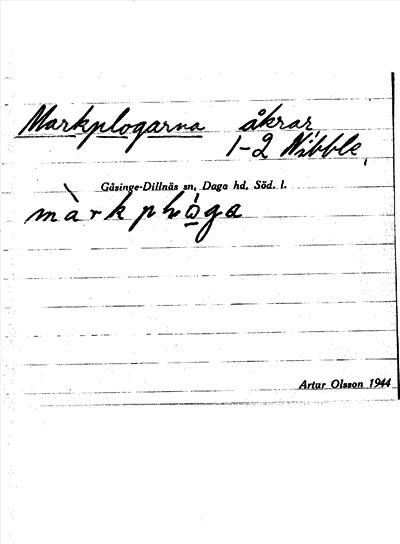 Markplogarna åkrar
1-2 Nibble,
Gåsinge-Dillnäs sn, Daga hd, Söd. l.
màrkplὼga
Artur Olsson 1944